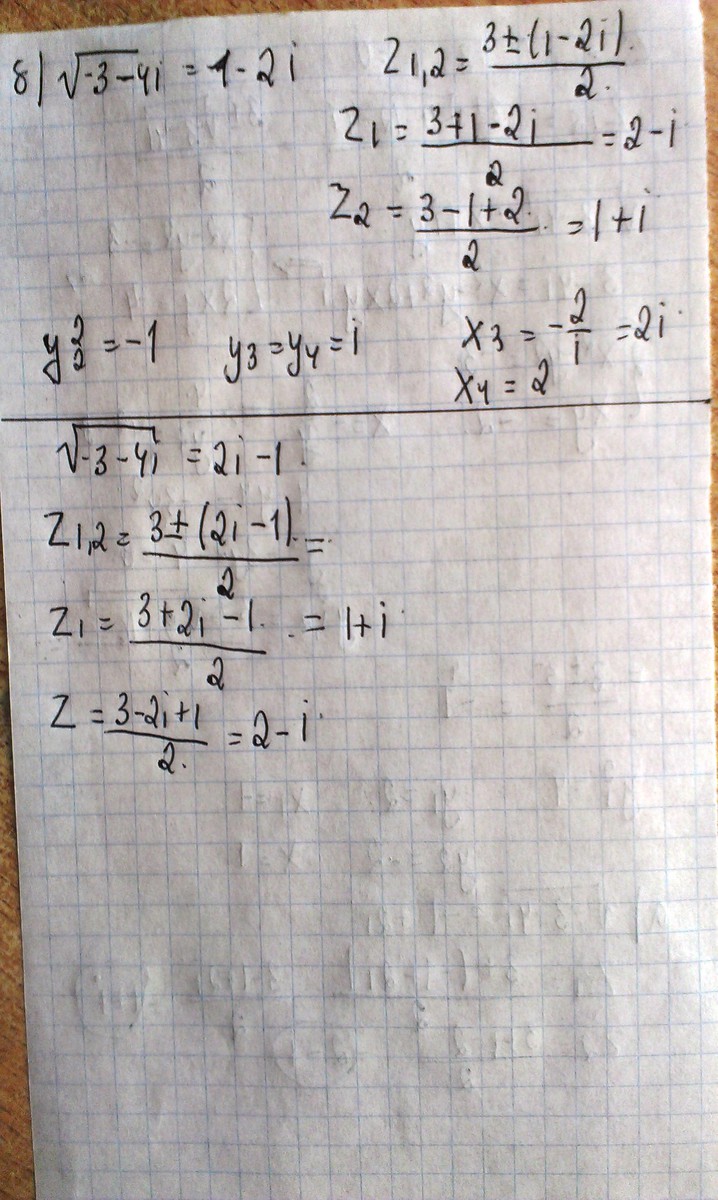 б) √-3-4i = 1-2i
Z1,2 = 3±(1-2i) / 2.
Z1 = 3+1-2i / 2 = 2-i
Z2 = 3-1+2. / 2 = 1+i
y₂² = -1 y3 = y4 = i x3 = -2/i = 2i
x4 = 2
√-3-4i = 2i-1.
Z1,2 = 3±(2i-1) / 2 =
Z1 = 3+2i-1. / 2 = 1+i
Z = 3-2i+1 / 2. = 2-i